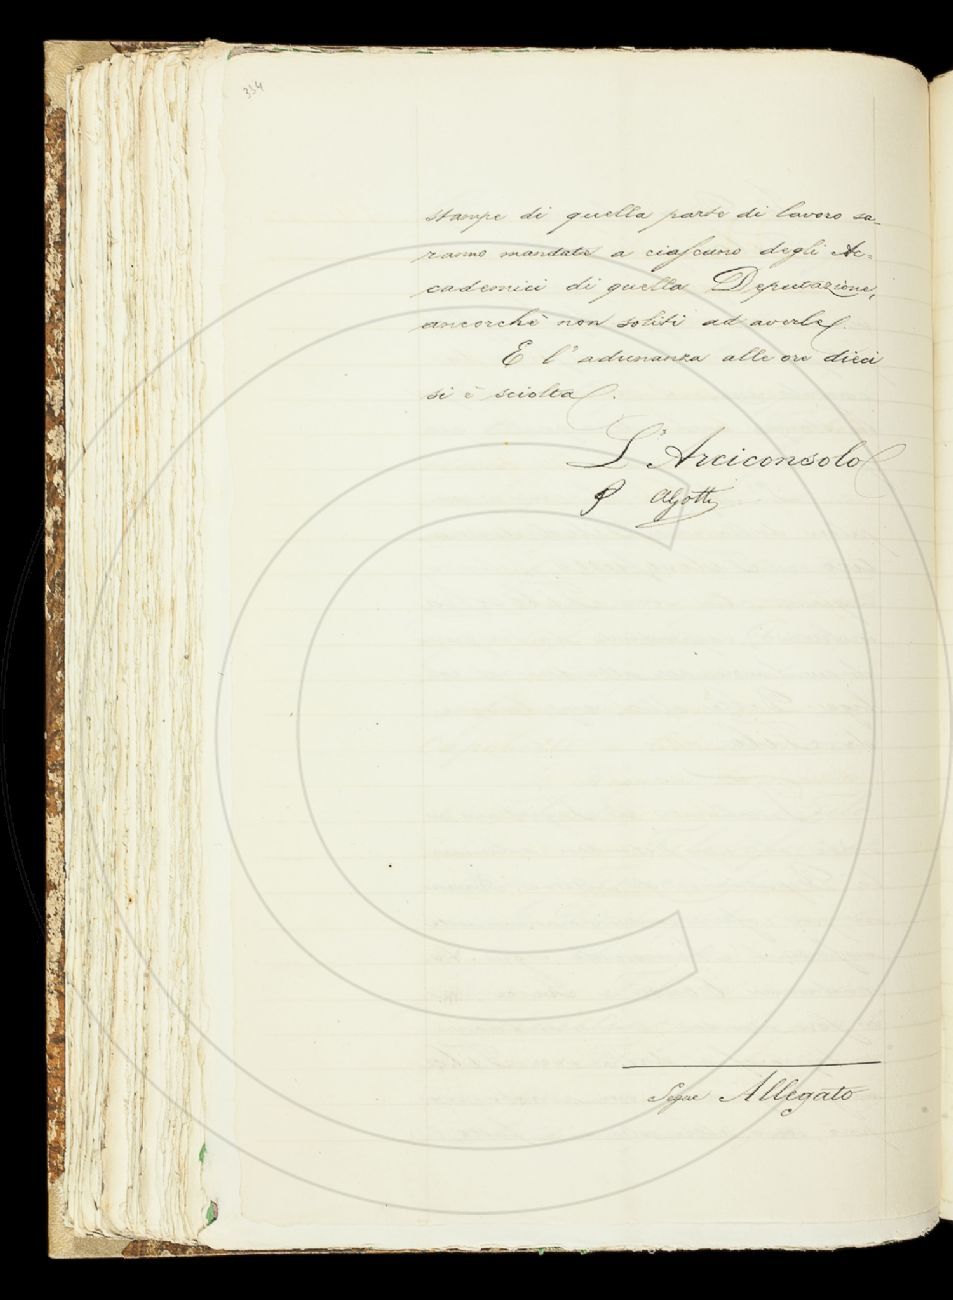 334
stampe di quella parte di lavoro sa-
ranno mandate a ciascuno degli Ac-
cademici di quella Deputazione,
ancorchè non soliti ad averle.
E l'adunanza alle ore dieci
si è sciolta.
L'Arciconsolo
Segue Allegato